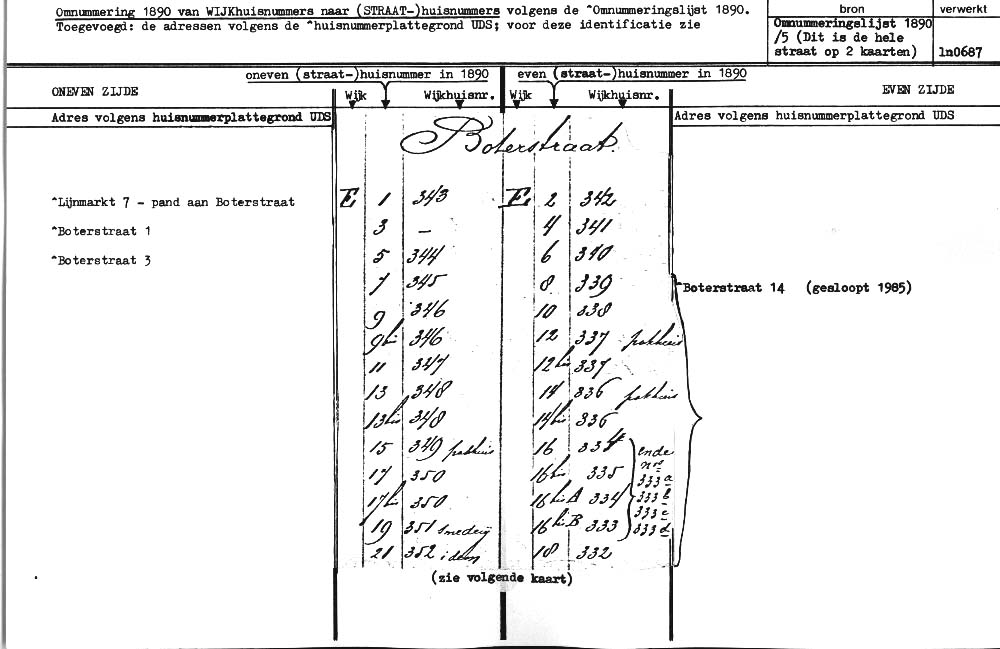 Omnummering 1890 van WIJKhuisnummers naar (STRAAT-)huisnummers volgens de ^Omnummeringslijst 1890.
Toegevoegd: de adressen volgens de ^huisnummerplattegrond UDS; voor deze identificatie zie
bron
verwerkt
Omnummeringslijst 1890
/5 (Dit is de hele
straat op 2 kaarten)
ln0687
oneven (straat-)huisnummer in 1890
even (straat-)huisnummer in 1890
ONEVEN ZIJDE
Wijk
Wijkhuisnr.
Wijk
Wijkhuisnr.
EVEN ZIJDE
Adres volgens huisnummerplattegrond UDS
Adres volgens huisnummerplattegrond UDS
Boterstraat.
^Lijnmarkt 7 - pand aan Boterstraat E 1 343 E 2 342
^Boterstraat 1 3 – 4 341
^Boterstraat 3 5 344 6 340
7 345 8 339 ^Boterstraat 14 (gesloopt 1985)
9 346 10 338
9bis 346 12 337 pakhuis
11 347 12bis 337
13 348 14 336 pakhuis
13bis 348 14bis 336
15 349 pakhuis 16 334
17 350 16bis 335
17bis 350 16bisA 334
19 351 smederij 16bisB 333
21 352 idem 18 332
ende
nrs
333a
333b
333c
333d
(zie volgende kaart)